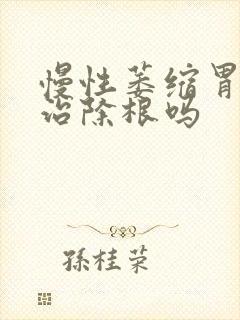 慢性萎缩胃
治除根吗
孫桂荣